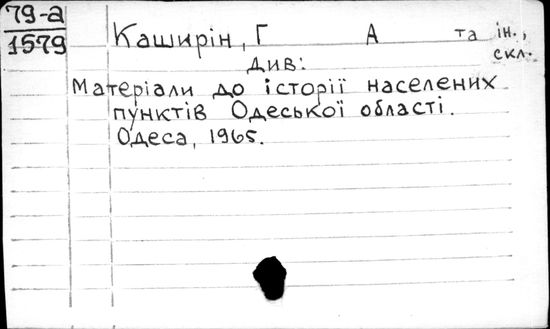 79-а
1579
Каширін, Г А та ін.,
скл.
див:
Матеріали до історії населених
пунктів Одеської області.
Одеса, 1965.